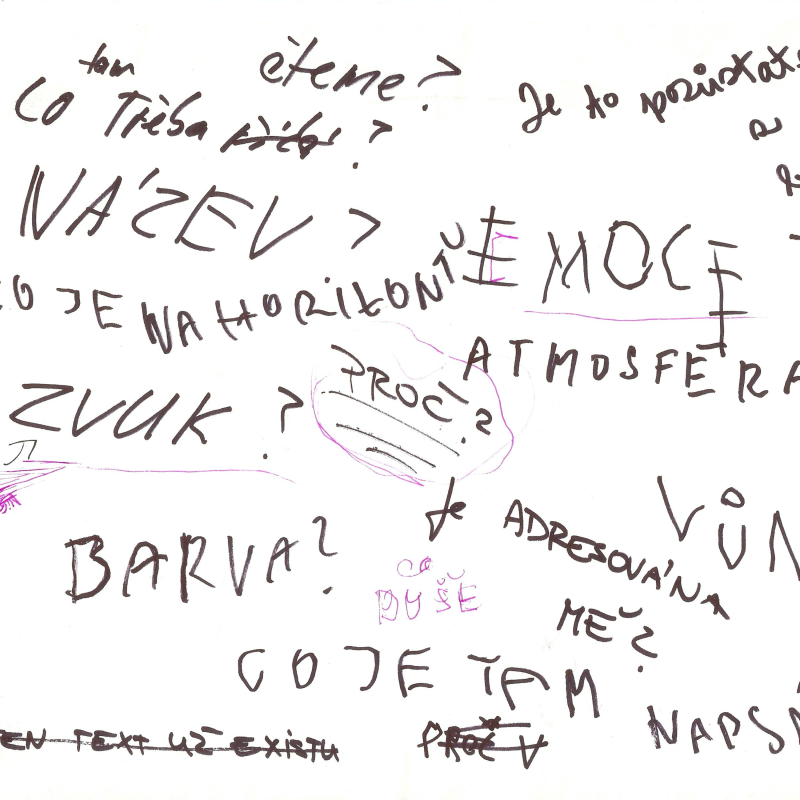 tam
čteme?
co třeba ?
Je to pozůstat
NÁZEV?
CO JE NA HORIZONTU
EMOCE
ATMOSFÉRA
PROČ?
ZVUK?
VŮN
je ADRESOVÁNA
BARVA?
CO
DUŠE
MĚ?
CO JE TAM
NAPSÁ
EN TEXT UŽ EXISTU
PROČ V